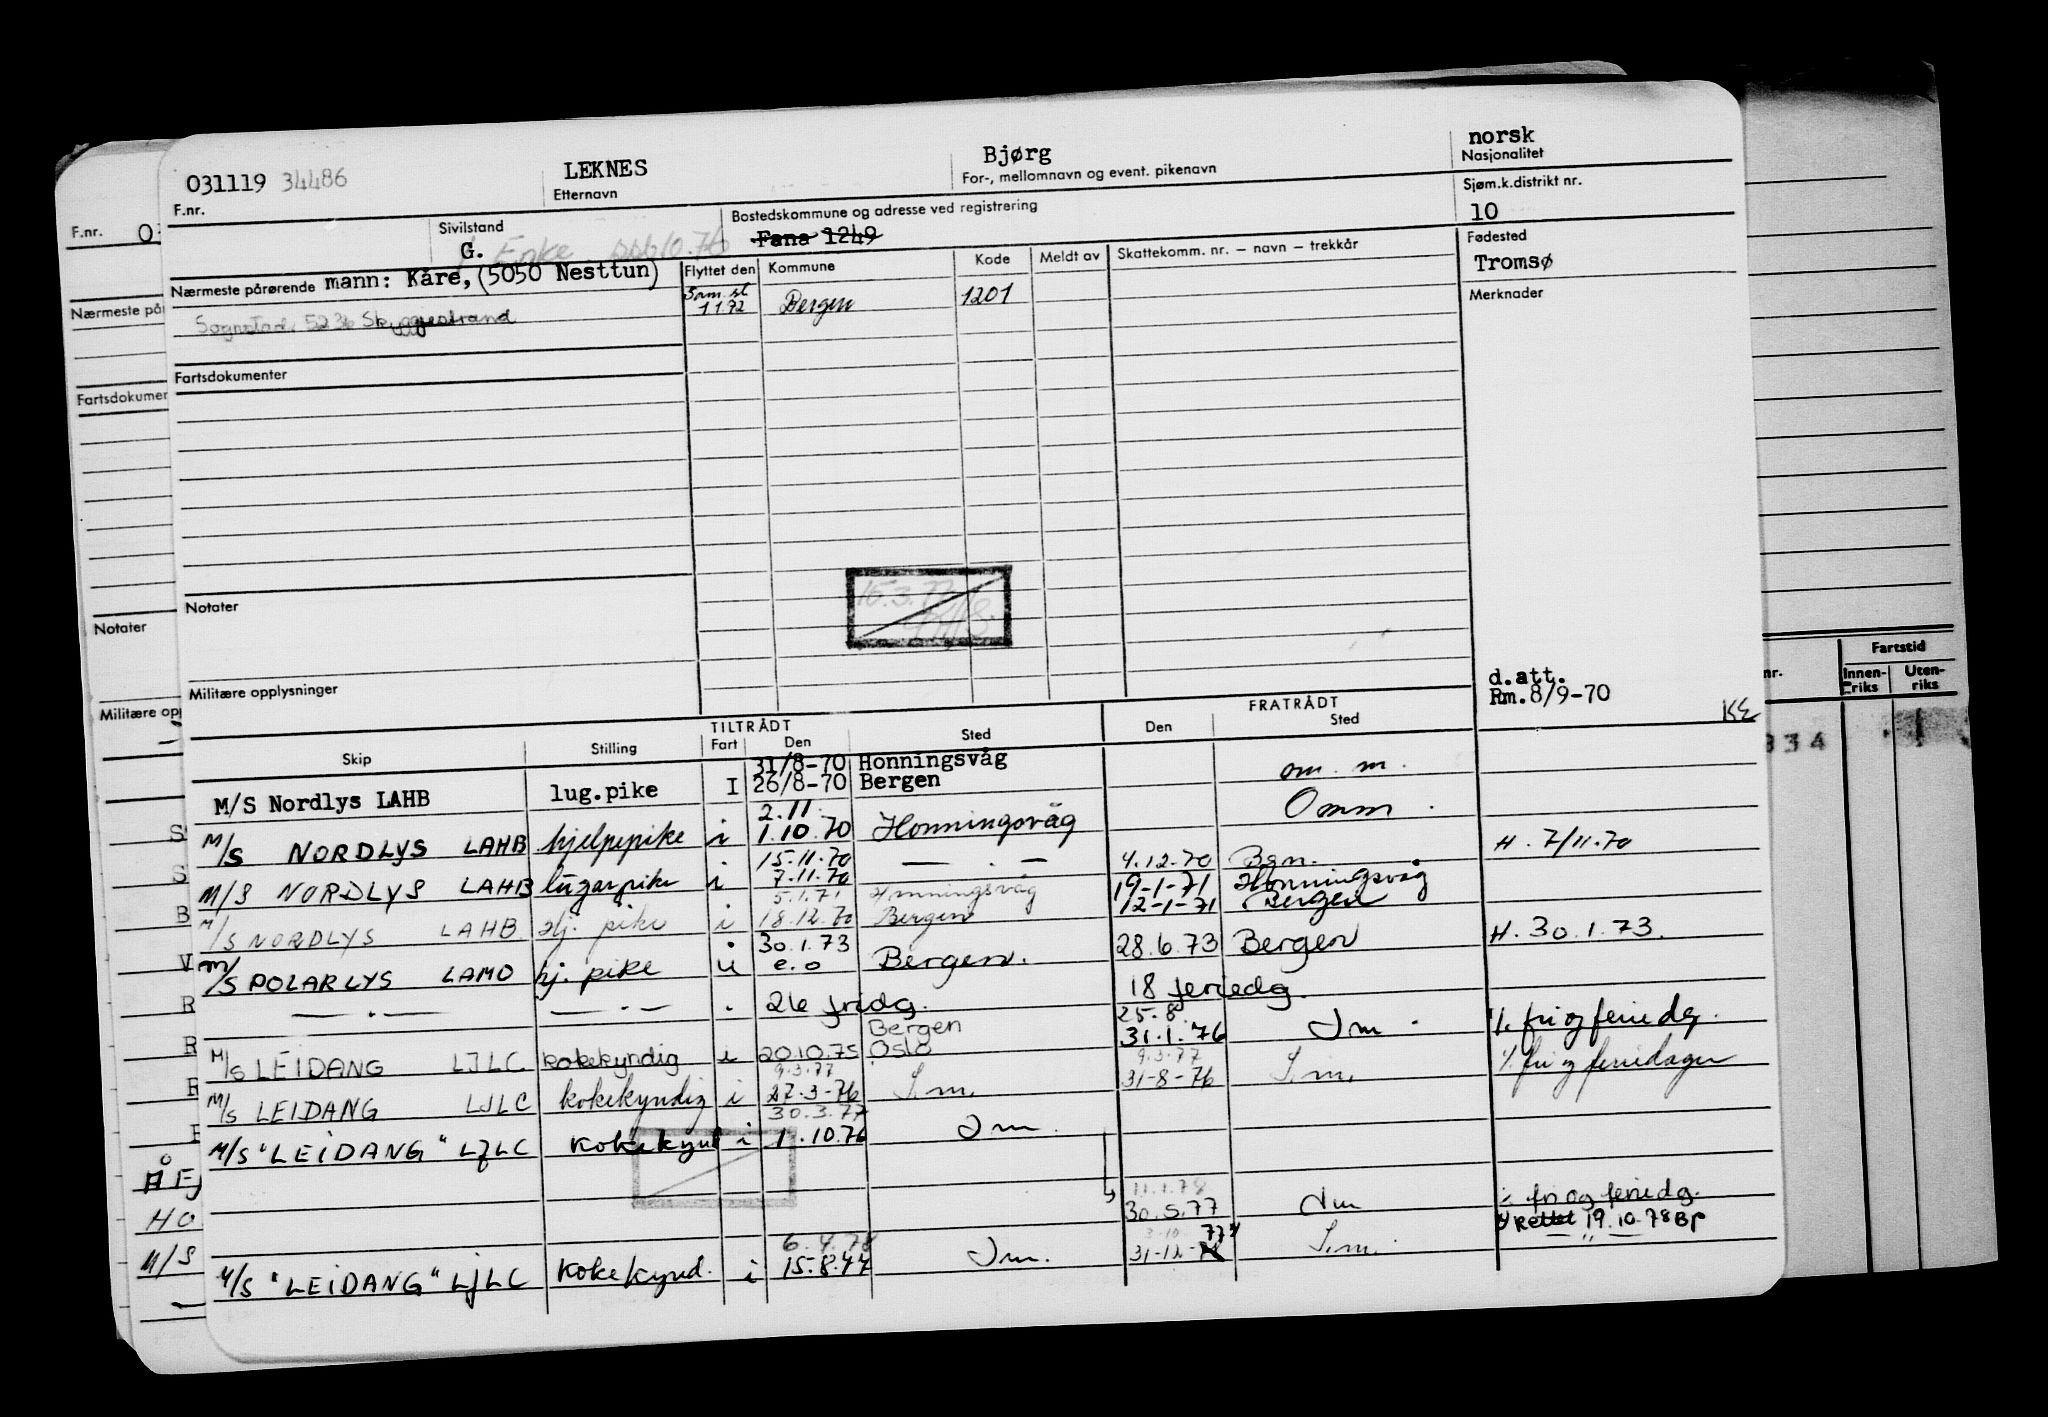 031119 34486 LEKNES Bjørg norsk
F.nr. Etternavn For-, mellomnavn og event. pikenavn Nasjonalitet
Sivilstand Bostedskommune og adresse ved registrering Sjøm.k.distrikt nr.
G. Enke Fana 1249 10
Nærmeste pårørende mann: Kåre, (5050 Nesttun) Flyttet den Kommune Kode Meldt av Skattekomm. nr. – navn – trekkår Fødested
Tromsø
Sam.st 1.1.72 Bergen 1201 Merknader
5236 Skyggestrand
Fartsdokumenter
Notater
15.3.77
Militære opplysninger
d.att.
Rm.8/9-70
KE
TILTRÅDT FRATRÅDT
Skip Stilling Fart Den Sted Den Sted
31/8-70 Honningsvåg
M/S Nordlys LAHB lug.pike I 26/8-70 Bergen om. m.
2.11.
M/S NORDLYS LAHB hjelpepike i 1.10.70 Honningsvåg Omm.
15.11.70 — . — 4.12.70 Bgn. H. 7/11.70
M/S NORDLYS LAHB lugarpike i 7.11.70
5.1.71 Honningsvåg 19-1-71 Honningsvåg
M/S NORDLYS LAHB hj. pike i 18.12.70 Bergen 12-1-71 Bergen
30.1.73 28.6.73 Bergen H. 30.1.73.
M/S POLARLYS LAMD hj. pike u e.o Bergen.
— . — — . — . 26 fridg. 18 feriedg.
Bergen 25.8
M/S LEIDANG LJLC kokekyndig i 20.10.75 Oslo 31.1.76 Sm. % fri og feriedg.
9.3.77 9.3.77
M/S LEIDANG LJLC kokekyndig i 27.3-76 S.m. 31-8-76 S.m. % fri og feriedager
30.3.77
M/S "LEIDANG" LJLC kokekynd i 1.10.76 Sm.
11.1.78
30.5.77 Sm ÷ fri og feriedg.
Rettet 19.10.78 BP
6.4.78
M/S "LEIDANG" LJLC kokekynd. i 15.8.77 Sm. 31-12-77 S.m.
F.nr.
Nærmeste på
Fartsdokumen
Notater
Militære opp
nr.
Fartstid
Innen-riks Uten-riks
334
M/S